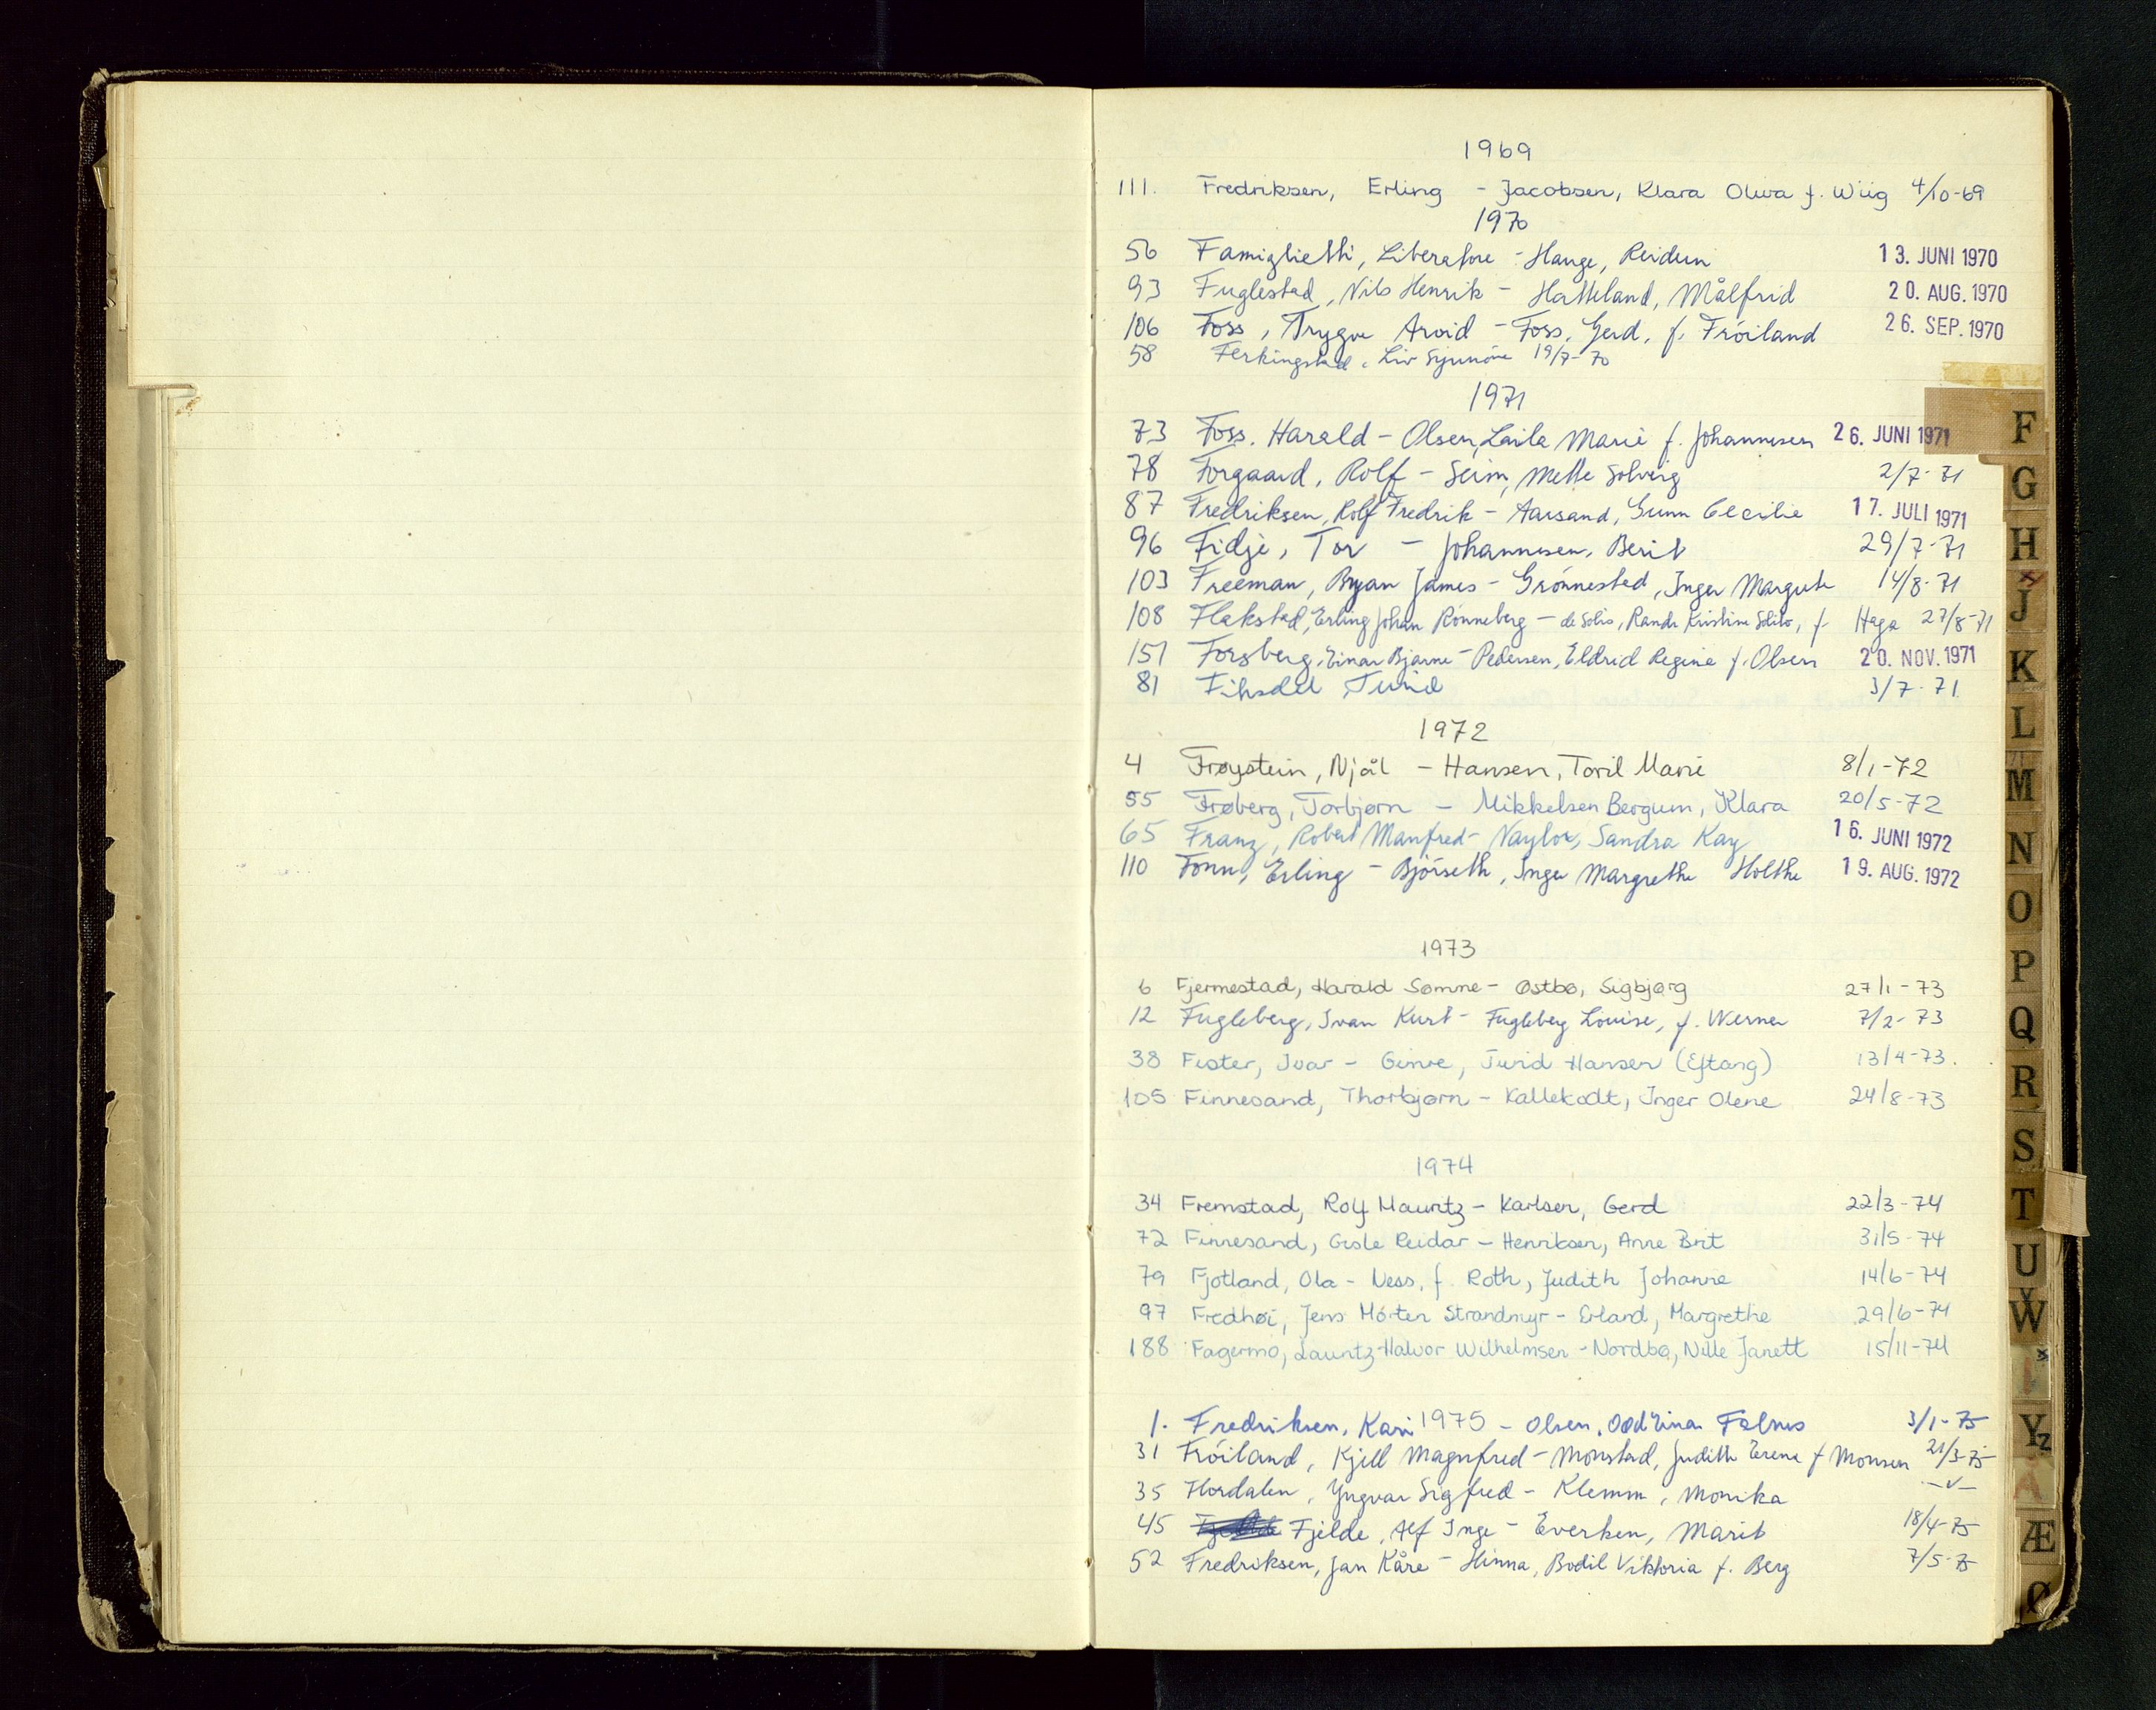 1969
111. Fredriksen, Erling - Jacobsen, Klara Oliva f. Wiig 4/10-69
1970
56 Famiglietti, Liberatore - Hauge, Reidun 13. JUNI 1970
93 Fuglestad, Nils Henrik - Hatteland, Målfrid 20. AUG. 1970
106 Foss, Trygve Arvid - Foss, Gerd, f. Fróiland 26. SEP. 1970
58 Ferkingstad, Liv Synnöve 19/7-70
1971
73 Foss. Harald - Olsen, Laila Marie f. Johannesen 26. JUNI 1971
78 Forgaard, Rolf - Seim, Mette Solveig 2/7-71
87 Fredriksen, Rolf Fredrik - Aarsand, Gunn Cecilie 17. JULI 1971
96 Fidje, Tor - Johannesen, Berit 29/7-71
103 Freeman, Bryan James - Grónnestad, Inger Margrete 14/8-71
108 Flakstad, Erling Johan Rónneberg - de Solis, Randi Kristine, f. Haga 27/8-71
151 Forsberg, Einar Bjarne - Pedersen, Eldrid Regine f. Olsen 20. NOV. 1971
81 Turid 3/7-71
1972
4 Frøystein, Njål - Hansen, Toril Marie 8/1-72
55 Frøberg, Torbjørn - Mikkelsen Bergum, Klara 20/5-72
65 Franz, Robert Manfred - Naylor, Sandra Kay 16. JUNI 1972
110 Fonn, Erling - Bjórseth, Inger Margrethe Holthe 19. AUG. 1972
1973
6 Fjermestad, Harald Sømme - Østbø, Sigbjørg 27/1-73
12 Fugleberg, Ivan Kurt - Fugleberg Louise, f. Werner 7/2-73
38 Fister, Ivar - Turid Hansen (Eftang) 13/4-73.
105 Finnesand, Thorbjørn - Kallekodt, Inger Olene 24/8-73
1974
34 Fremstad, Rolf Mauritz - Karlsen, Gerd 22/3-74
72 Finnesand, Gisle Reidar - Henriksen, Anne Brit 31/5-74
79 Fjotland, Ola - Ness, f. Roth, Judith Johanne 14/6-74
97 Fredhøi, Jens Mórten Strandmyr - Erland, Margrethe 29/6-74
188 Fagermo, Lauritz Halvor Wilhelmsen - Nordbø, Nille Janett 15/11-74
1. Fredriksen, Kari 1975 - Olsen, Odd Einar Falnes 3/1-75
31 Fróiland, Kjell Magnfred - Monstad, Judith Erene f Monsen 21/3-75
35 Flordalen, Yngvar Sigfred - Klemm, Monika -v-
45 Fjelde, Alf Inge - Everken, Marit 18/4-75
52 Fredriksen, Jan Kåre - Hinna, Bodil Viktoria f. Berg 7/5-75
F
G
H
J
K
L
M
N
O
P
Q
R
S
T
U
W
Y
Z
Å
Æ
Ø